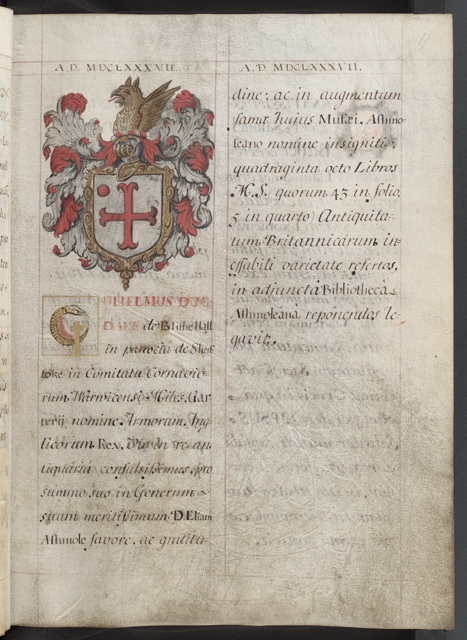 A.D. MDCLXXXVII.
GULIELMUS DUG
DALE de Blithe Hall
in parrociâ de Shus
toke in Comitatu Cornavio
rum Warwicensi Miles, Gar
terij nomine Armorum Ang
licorum Rex, Vir in re an
tiquariâ consultissimus, pro
summo suo in Generum
suum meritissimum D. Eliam
Ashmole favore, ac gratitu
A.D. MDCLXXXVII.
dine; ac in augmentum
famæ hujus Musæi, Ashmo
leano nomine insigniti;
quadraginta octo Libros
M.S. quorum 43 in folio,
5 in quarto) Antiquita
tum Britannicarum in
effabili varietate refertos,
in adjunctâ Bibliothecâ
Ashmoleana, reponendos le
gavit.